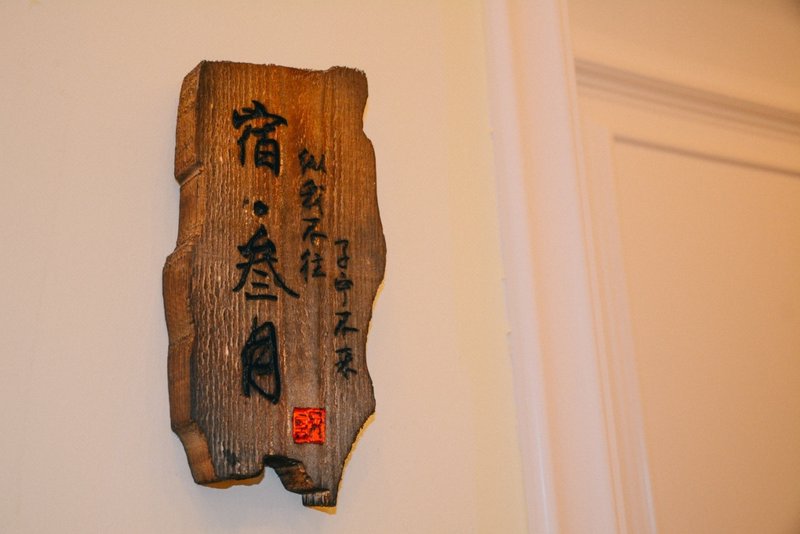 宿·叁月
纵我不往
子宁不来